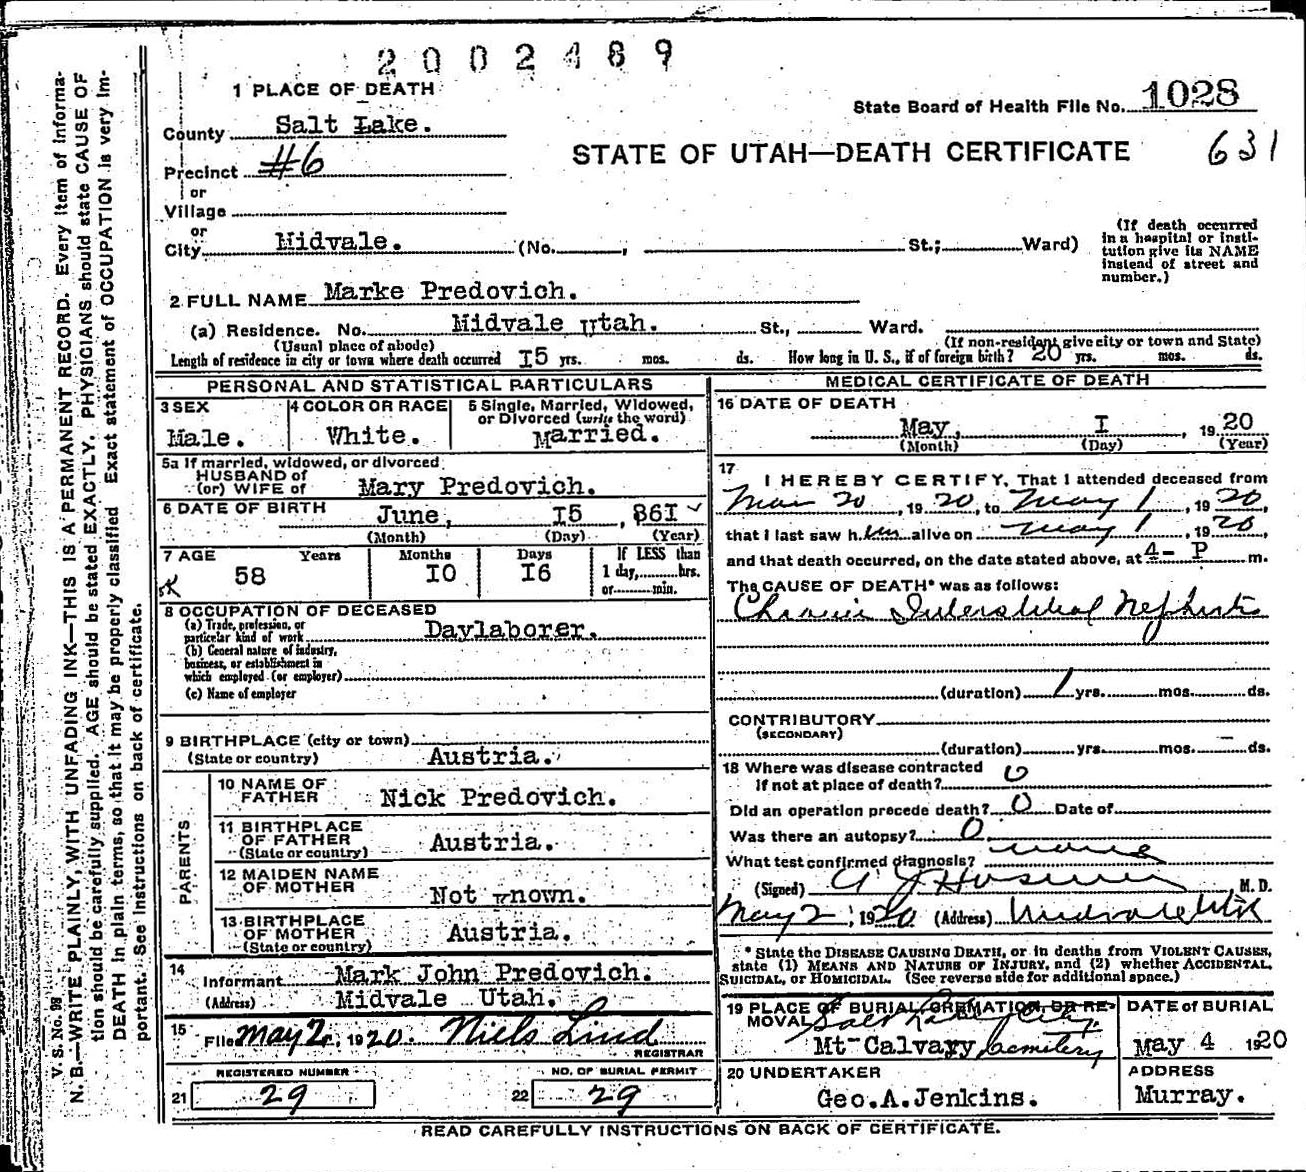 2002489
1 PLACE OF DEATH
State Board of Health File No. 1028
County Salt Lake.
STATE OF UTAH—DEATH CERTIFICATE 631
Precinct #6
or
Village
or
City Midvale. (No. , St.; Ward)
(If death occurred in a hospital or insti-
tution give its NAME
instead of street and
number.)
2 FULL NAME Marke Predovich.
(a) Residence. No. Midvale Utah. St., Ward.
(Usual place of abode) (If non-resident give city or town and State)
Length of residence in city or town where death occurred I5 yrs. mos. ds. How long in U. S., if of foreign birth? 20 yrs. mos. ds.
PERSONAL AND STATISTICAL PARTICULARS
3 SEX
Male.
4 COLOR OR RACE
White.
5 Single, Married, Widowed,
or Divorced (write the word)
Married.
5a If married, widowed, or divorced
HUSBAND of
(or) WIFE of Mary Predovich.
6 DATE OF BIRTH June, I5 , 86I
(Month) (Day) (Year)
7 AGE Years Months Days If LESS than
58 I0 I6 1 day, hrs.
or min.
8 OCCUPATION OF DECEASED
(a) Trade, profession, or
particular kind of work Daylaborer.
(b) General nature of industry,
business, or establishment in
which employed (or employer)
(c) Name of employer
9 BIRTHPLACE (city or town)
(State or country) Austria.
PARENTS
10 NAME OF
FATHER Nick Predovich.
11 BIRTHPLACE
OF FATHER Austria.
(State or country)
12 MAIDEN NAME
OF MOTHER Not nown.
13 BIRTHPLACE
OF MOTHER Austria.
(State or country)
14
Informant Mark John Predovich.
(Address) Midvale Utah.
15
Filed May 2, 1920. Niels Lind
REGISTRAR
REGISTERED NUMBER NO. OF BURIAL PERMIT
21 29 22 29
MEDICAL CERTIFICATE OF DEATH
16 DATE OF DEATH
May, I , 1920
(Month) (Day) (Year)
17
I HEREBY CERTIFY, That I attended deceased from
Mar 20, 1920, to May 1, 1920,
that I last saw him alive on May 1, 1920,
and that death occurred, on the date stated above, at 4- P m.
The CAUSE OF DEATH* was as follows:
Chronic Interstitial Nephritis
(duration) 1 yrs. mos. ds.
CONTRIBUTORY
(SECONDARY)
(duration) yrs. mos. ds.
18 Where was disease contracted
If not at place of death? 0
Did an operation precede death? 0 Date of
Was there an autopsy? 0
What test confirmed diagnosis? none
(Signed) , M. D.
May 2, 1920 (Address) Midvale Utah
* State the DISEASE CAUSING DEATH, or in deaths from VIOLENT CAUSES,
state (1) MEANS AND NATURE OF INJURY, and (2) whether ACCIDENTAL,
SUICIDAL, or HOMICIDAL. (See reverse side for additional space.)
19 PLACE OF BURIAL, CREMATION, OR RE-
MOVAL Salt Lake City.
Mt Calvary Cemetery
DATE of BURIAL
May 4 1920
20 UNDERTAKER
Geo.A.Jenkins.
ADDRESS
Murray.
READ CAREFULLY INSTRUCTIONS ON BACK OF CERTIFICATE.
V. S. No. 98
N. B.—WRITE PLAINLY, WITH UNFADING INK—THIS IS A PERMANENT RECORD. Every item of informa-
tion should be carefully supplied. AGE should be stated EXACTLY. PHYSICIANS should state CAUSE OF
DEATH in plain terms, so that it may be properly classified. Exact statement of OCCUPATION is very im-
portant. See instructions on back of certificate.